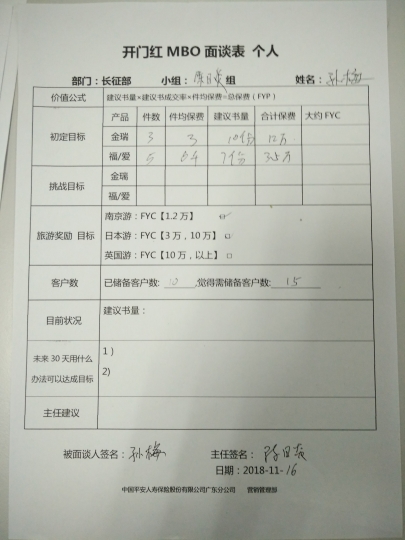 开门红 MBO 面谈表 个人
部门：长征部 小组：陈日 组 姓名：孙梅
价值公式 建议书量×建议书成交率×件均保费=总保费（FYP）
初定目标 产品 件数 件均保费 建议书量 合计保费 大约 FYC
金瑞 3 3 10份 12万
福/爱 5 7份 3.5万
挑战目标 金瑞
福/爱
旅游奖励 目标 南京游：FYC【1.2 万】
日本游：FYC【3 万，10 万】 □
英国游：FYC【10 万，以上】 □
客户数 已储备客户数: 10 ,觉得需储备客户数: 15
目前状况 建议书量：
未来 30 天用什么办法可以达成目标 1 )
2)
主任建议
被面谈人签名：孙梅 主任签名：陈日
日期：2018-11-16
中国平安人寿保险股份有限公司广东分公司 营销管理部